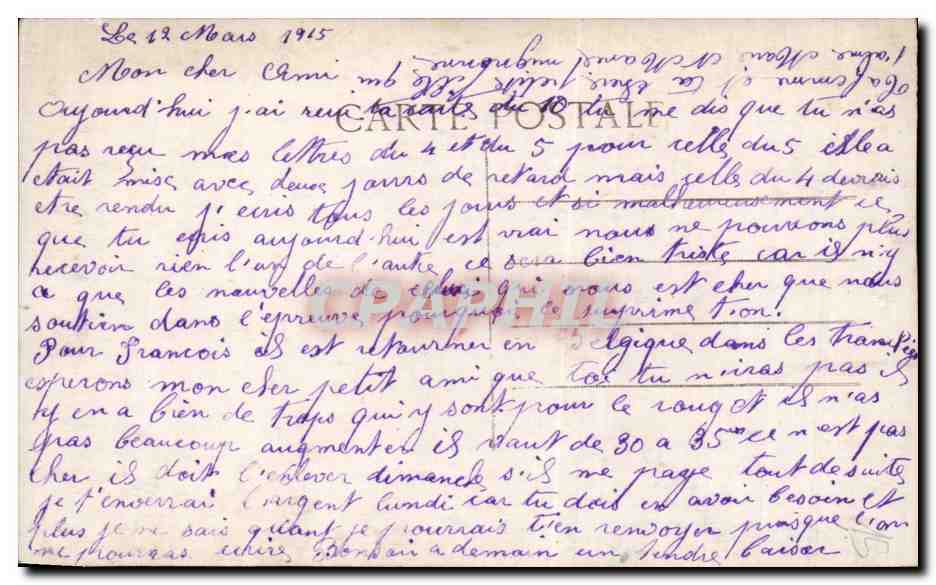 Le 12 Mars 1915
Mon cher Ami
CARTE POSTALE
Aujourd'hui j.ai reçu ta carte du 10 tu me dis que tu n'as
pas reçu mes lettres du 4 et du 5 pour celle du 5 elle a
était mise avec deux jours de retard mais celle du 4 devrais
etre rendu j'ecris tous les jours et si malheureusement ce
que tu ecris aujourd.hui est vrai nous ne pouvons plus
recevoir rien l'un de l'autre ce sera bien triste car il n'y
a que les nouvelles de celui qui nous est cher que nous
soutien dans l'épreuve pourquoi ce suprime t'ion.
Pour François il est retourner en Belgique dans les
esperons mon cher petit ami que toi tu n'iras pas il
y en a bien de trops qui y sont pour le rouget il n'as
pas beaucoup augmenter il vaut de 30 a 35 ce n'est pas
cher il doit l'enlever dimanche s'il me paye tout de suite
je t'enverrai l'argent lundi car tu dois en avoir besoin et
plus je ne sais quant je pourrais t'en renvoyer puisque l'on
ne pourras ecrire Bonsoir a demain un tendre baiser
Ta femme et ta chère petite fille qui
t'aime